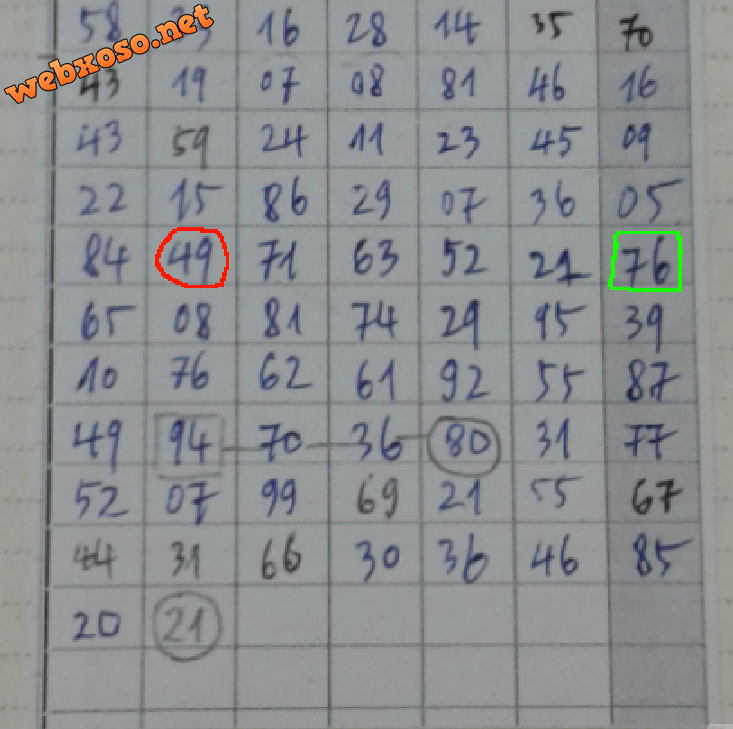 webxoso.net
58 16 28 14 35 70
43 19 07 08 81 46 16
43 59 24 11 23 45 09
22 15 86 29 07 36 05
84 49 71 63 52 21 76
65 08 81 74 29 95 39
10 76 62 61 92 55 87
49 94 70 36 80 31 77
52 07 99 69 21 55 67
44 31 66 30 36 46 85
20 21